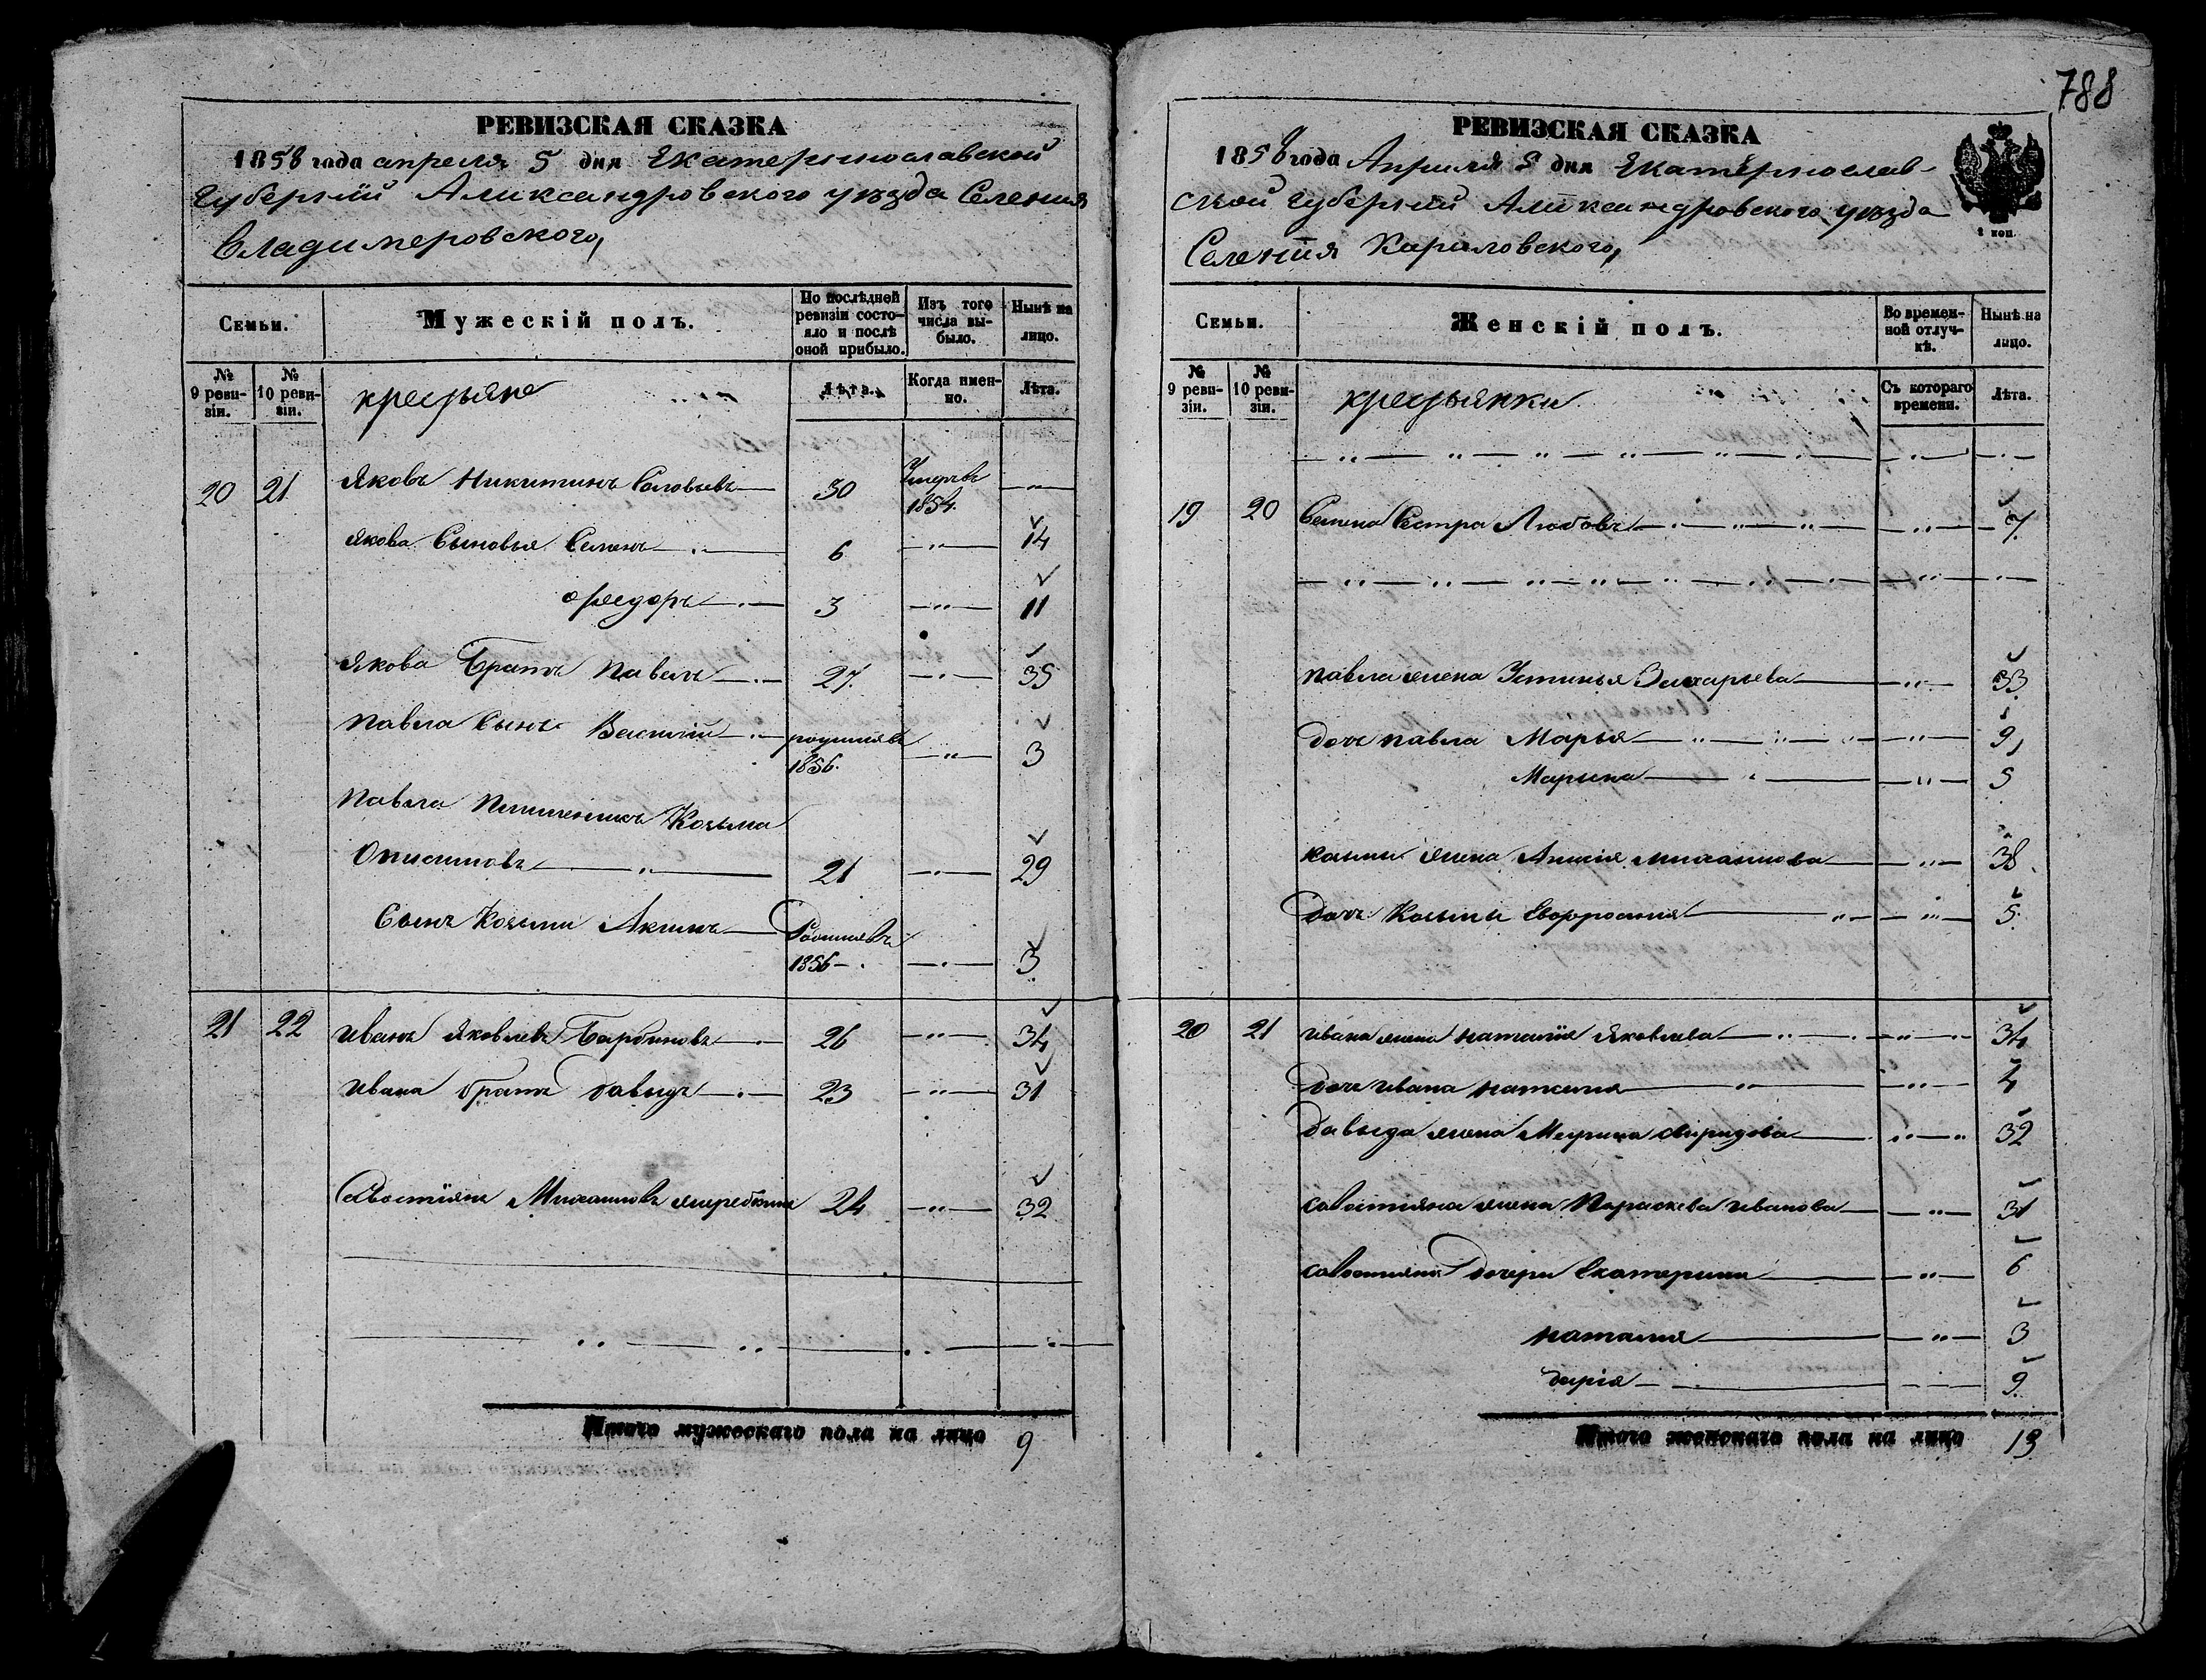 788
РЕВИЗСКАЯ СКАЗКА
1858 года апреля 5 дня Екатеринославской
Губернiй Аликсандровского уѣзда Селения
Владимеровского,
Семьи.
Мужескiй полъ.
По послѣдней ревизiи состояло и послѣ оной прибыло.
Изъ того числа выбыло.
Нынѣ на лицо.
№ 9 ревизiи.
№ 10 ревизiи.
крестьяне
Лѣта.
Когда именно.
Лѣта.
20 21 Яковъ Никитинъ Соловьевъ 30 Умеръ 1854.
Якова Сыновья Семенъ 6 14
Ѳедоръ 3 11
Якова Братъ Павелъ 27. 35
Павла Сынъ Василiй родился 1856. 3
Павла Племенникъ Козьма
Онисимовъ 21 29
Сынъ Козьми Акимъ Родился 1856 3
21 22 Иванъ Яковлевъ Барбиновъ 26 34
Ивана братъ Давыдъ 23 31
Савостiянъ Михаиловъ 24 32
Итого мужескаго пола на лицо 9
РЕВИЗСКАЯ СКАЗКА
1858 года Априля 5 дня Екатеринослав-
ской Губернiи Аликсандровского уѣзда
Селенiя Кириловского,
2 коп.
Семьи.
Женскiй полъ.
Во временной отлучкѣ.
Нынѣ на лицо.
№ 9 ревизiи.
№ 10 ревизiи.
крестьянки
Съ котораго времени.
Лѣта.
19 20 Семена Сестра Любовъ 7.
Павла жена Устинья Захарьева 33
Дочь Павла Марья 9
Марина 5
Козьми жена Анисiя Михаилова 38
Дочь Козьми Евфросиния 5.
20 21 Ивана жена Наталiя Яковлева 34
Дочь Ивана Наталия 4
Давыда жена Матрина Свиридова 32
Савостияна жена Параскева Иванова 31
Савостияна Дочери Екатерина 6
Наталия 3
Дария 9
Итого женскаго пола на лицо 13